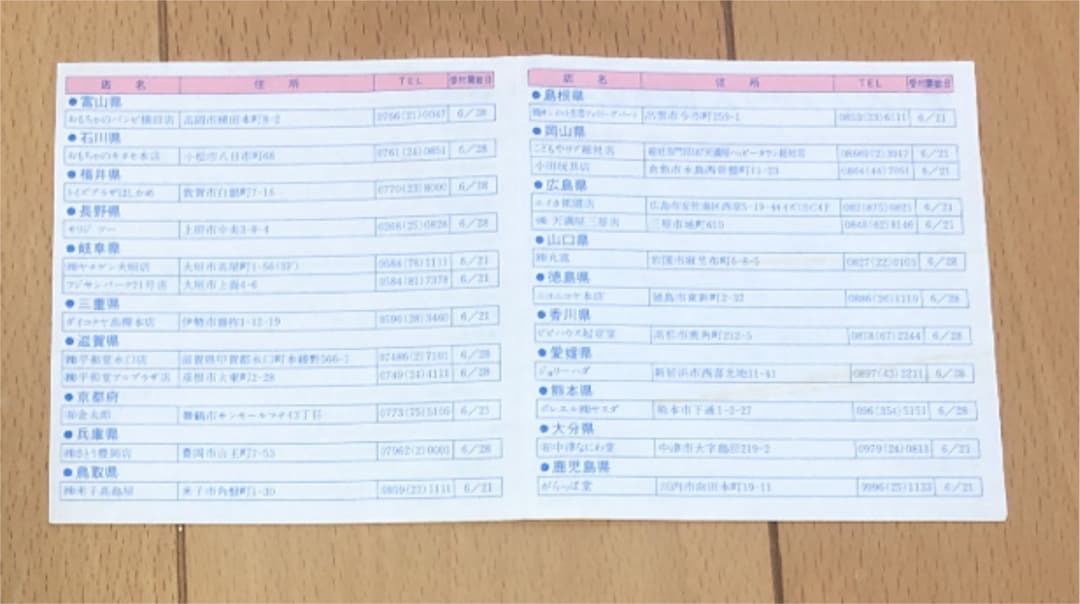 店 名 住 所 TEL 受付開始日
●富山県
おもちゃのバンビ横田店 高岡市横田本町8-2 0766(21)0047 6/28
●石川県
おもちゃのキタセ本店 小松市八日市町68 0761(24)0854 6/28
●福井県
トイズプラザはしかめ 敦賀市白銀町7-15 0770(23)8000 6/28
●長野県
上田市中央3-8-4 0268(25)0828 6/28
●岐阜県
㈱ヤナゲン大垣店 大垣市高屋町1-56 0584(78)1111 6/21
フジサンパーク21号店 大垣市上面4-6 0584(81)7378 6/21
●三重県
ダイコクヤ高柳本店 伊勢市 1-12-19 0596(28)3460 6/21
●滋賀県
㈱平和堂水口店 滋賀県甲賀郡水口町本綾野566-1 07486(2)7101 6/28
㈱平和堂アルプラザ店 彦根市大東町2-28 0749(24)4111 6/28
●京都府
㈲金太郎 舞鶴市サンモールマナイ3丁目 0773(75)5105 6/25
●兵庫県
㈱さとう豊岡店 豊岡市山王町7-53 07962(2)0001 6/28
●鳥取県
㈱米子高島屋 米子市角盤町1-30 0859(22)1111 6/21
店 名 住 所 TEL 受付開始日
●島根県
出雲市今市町259-1 0853(23)6111 6/21
●岡山県
こどもやリブ総社店 6/25
小田玩具店 倉敷市水島西常盤町11-23 0864(44)7051 6/21
●広島県
エイカ祇園店 広島市安佐南区西原5-19 082(875)0821 6/21
㈱ 天満屋三原店 三原市城町615 0848(62)8146 6/25
●山口県
㈱丸富 岩国市麻里布町6-8-5 0827(22)0103 6/28
●徳島県
ニコニコヤ本店 徳島市東新町2-32 0886(26)1119 6/28
●香川県
高松市鹿角町212-5 0878(67)2244 6/28
●愛媛県
ジョリーハダ 新居浜市西喜光地11-41 0897(43)2211 6/28
●熊本県
ボレエル㈱ヤスダ 熊本市下通1-2-27 096(354)5151 6/28
●大分県
㈲中津なにわ堂 中津市大字島田219-2 0979(24)0813 6/25
●鹿児島県
がらっぱ堂 川内市向田本町19-11 0996(25)1133 6/25